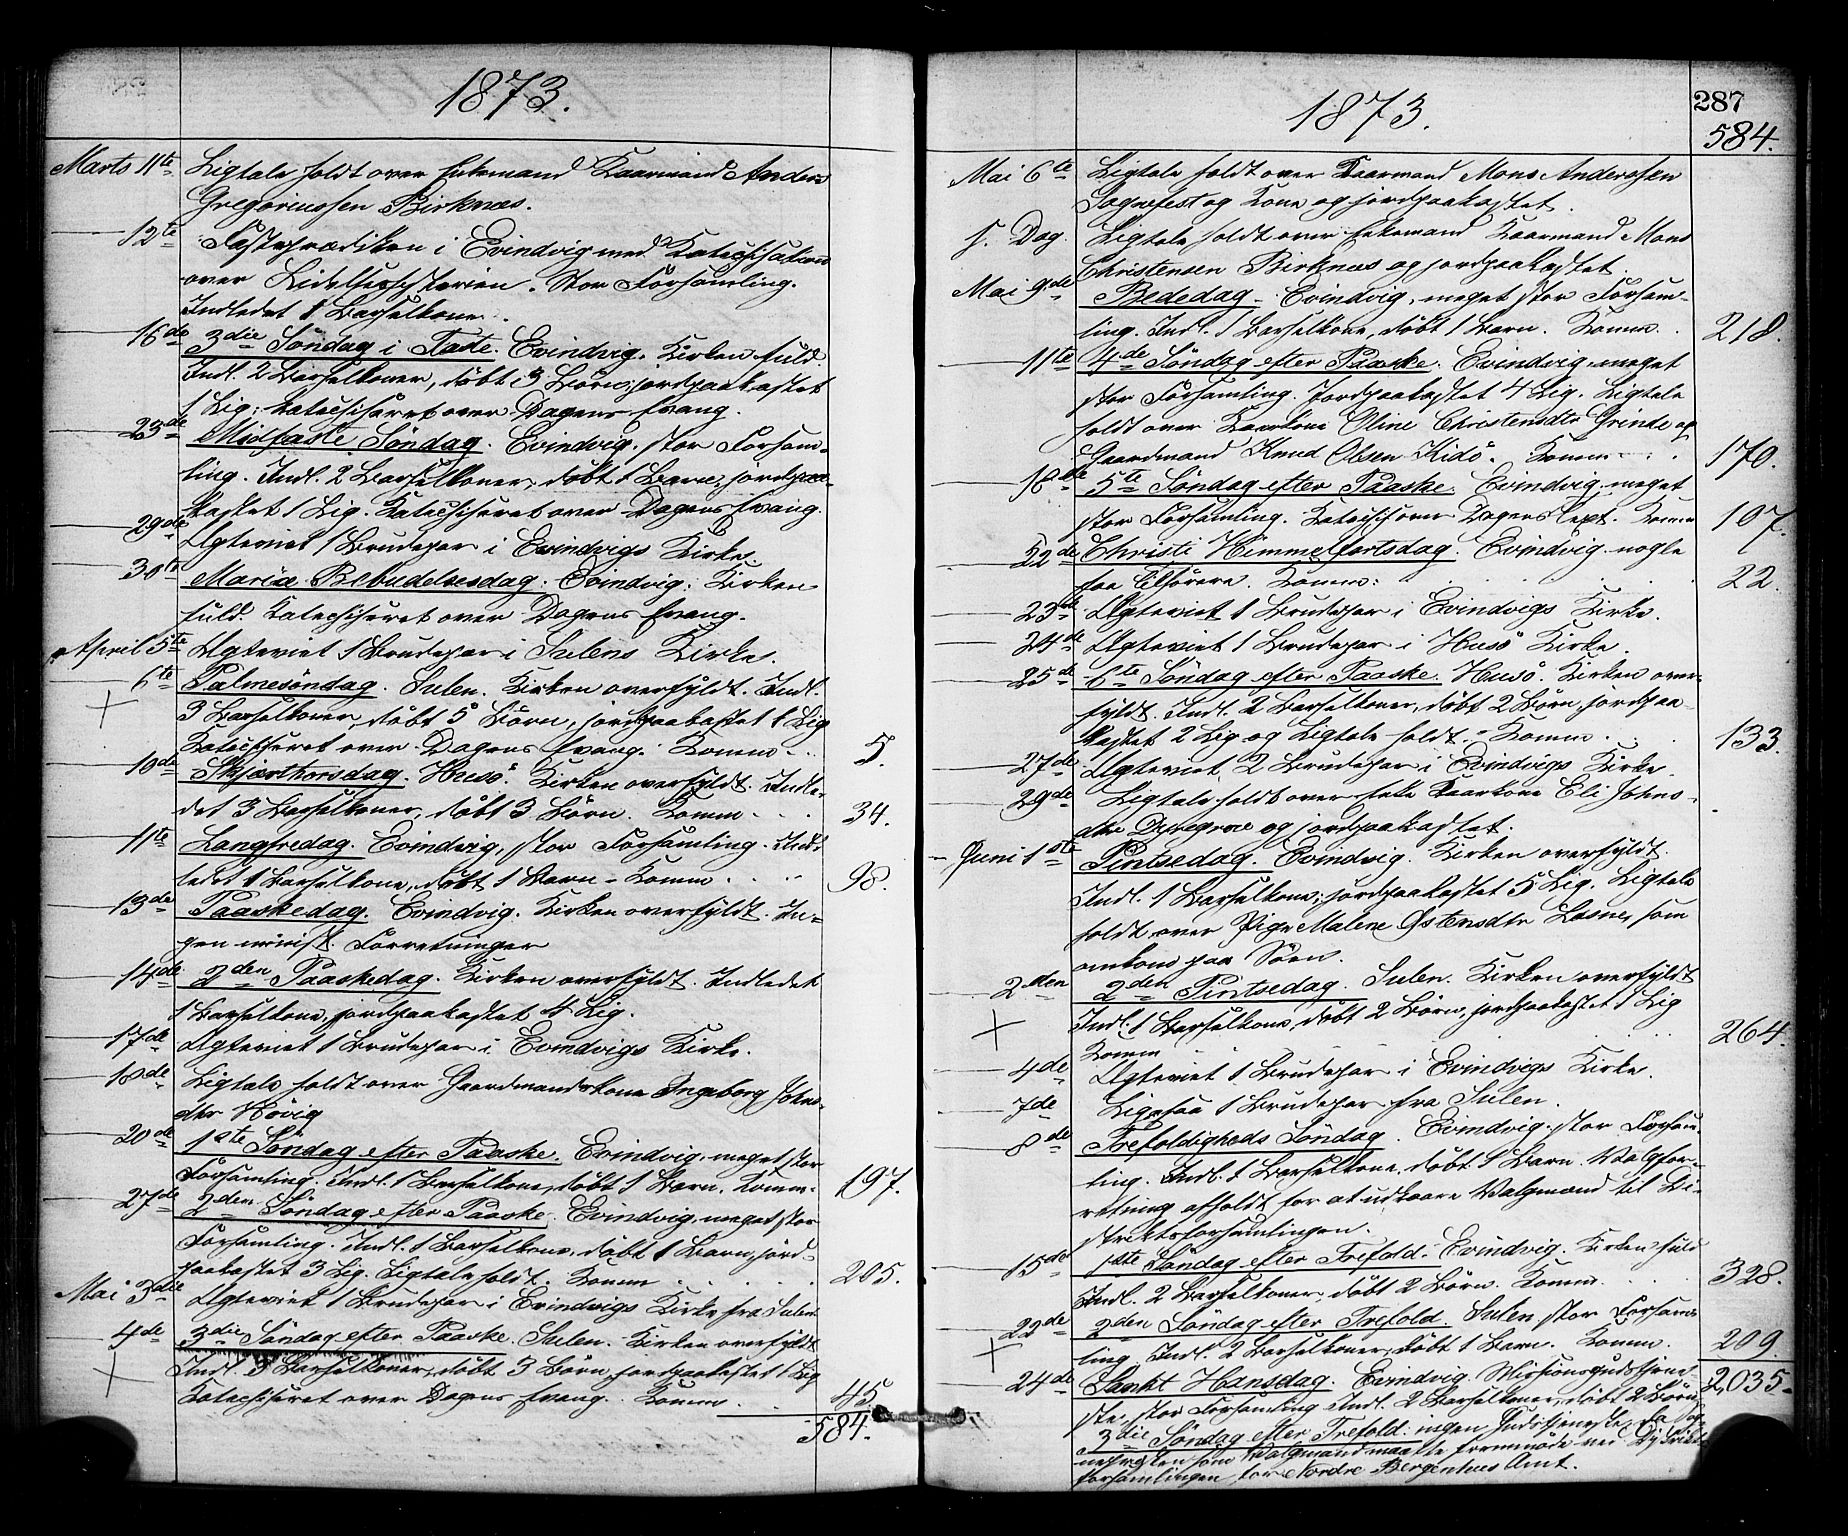 1873.
Marts 11te Ligtale holdt over Enkemand Kaarmand Anders
Gregoriussen Birknæs.
12te Fasteprædiken i Evindvig med Katechisation
over Lidelseshistorien. Stor Forsamling.
Indledet 1 Barselkone.
16de 3die Søndag i Faste. Evindvig. Kirken fuld.
Indl. 2 Barselkoner, døbt 3 Börn, jordpaakastet
1 Lig; katechiseret over Dagens Evang.
23de Midfaste Søndag. Evindvig. stor Forsam-
ling. Indl. 2 Barselkoner, döbt 1 Barn, jordpaa-
kastet 1 Lig. Katechiseret over Dagens Evang.
29de Ægteviet 1 Brudepar i Evindvigs Kirke.
30te Mariæ Bebudelsesdag. Evindvig. Kirken
fuld. Katechiseret over Dagens Evang.
April 5te Ægteviet 1 Brudepar i Sulens Kirke.
6te Palmesöndag. Sulen. Kirken overfyldt. Indl.
3 Barselkoner, døbt 5 Börn, jordpaakastet 1 Lig
Katechiseret over Dagens Evang. Komm. . . 5.
10de Skjærthorsdag. Husö. Kirken overfyldt. Indle-
det 3 Barselkoner, döbt 3 Börn. Komm. . . 34.
11te Langfredag. Evindvig, stor Forsamling. Ind-
ledet 1 Barselkone, döbt 1 Barn. Komm. . . 98.
13de Paaskedag. Evindvig. Kirken overfyldt. In-
gen minist. Forretninger
14de 2den Paaskedag. Kirken overfyldt. Indledet
1 Barselkone, jordpaakastet 4 Lig.
17de Ægteviet 1 Brudepar i Evindvigs Kirke.
18de Ligtale holdt over Gaardmandskone Ingeborg Johns-
dtr Hövig
20de 1ste Søndag efter Paaske. Evindvig, meget stor
Forsamling. Indl. 1 Barselkone, döbt 1 Barn. Komm. 197.
27de 2den Søndag efter Paaske. Evindvig, meget stor
Forsamling. Indl. 1 Barselkone, döbt 1 Barn, jord-
paakastet 3 Lig. Ligtale holdt. Komm. . . 205.
Mai 3die Ægteviet 1 Brudepar i Evindvigs Kirke fra Sulen
4de 3die Søndag efter Paaske. Sulen. Kirken overfyldt
Indl. 3 Barselkoner, döbt 3 Börn, jordpaakastet 1 Lig
Katechiseret over Dagens Evang. Komm. . . 45.
584.
287
1873.
584.
Mai 6te Ligtale holdt over Kaarmand Mons Anderssen
og Kone og jordpaakastet.
s. Dag. Ligtale holdt over Enkemand Kaarmand Mons
Christensen Birknæs og jordpaakastet.
Mai 9de Bededag. Evindvig, meget stor Forsam-
ling. Indl. 1 Barselkone, döbt 1 Barn. Komm. . 218.
11te 4de Söndag efter Paaske. Evindvig, meget
stor Forsamling. Jordpaakastet 4 Lig. Ligtale
holdt over Kaarkone Oline Christensdtr Grinde og
Gaardmand Knud Olsen Kidö. Komm. . . 170.
18de 5te Söndag efter Paaske. Evindvig, meget
stor Forsamling. Katechis. over Dagens Text. Komm 107.
22de Christi Himmelfartsdag. Evindvig. nogle
faa Tilhörere. Komm: . . 22.
23de Ægteviet 1 Brudepar i Evindvigs Kirke.
24de Ægteviet 1 Brudepar i Husö Kirke.
25de 6te Søndag efter Paaske. Husö. Kirken over-
fyldt. Indl. 2 Barselkoner, döbt 2 Börn, jordpaa-
kastet 2 Lig og Ligtale holdt. Komm. . . 133.
27de Ægteviet 2 Brudepar i Evindvigs Kirke.
29de Ligtale holdt over Enke Kaarkone Eli Johns-
dtr og jordpaakastet.
Juni 1ste Pintsedag. Evindvig. Kirken overfyldt.
Indl. 1 Barselkone, jordpaakastet 5 Lig. Ligtale
holdt over Pige Malene Østensdtr Losne, som
omkom paa Söen.
2.den 2den Pintsedag. Sulen. Kirken overfyldt
Indl. 1 Barselkone, döbt 2 Börn, jordpaakastet 1 Lig
Komm . . 264.
4de Ægteviet 1 Brudepar i Evindvigs Kirke.
7de Ligesaa 1 Brudepar fra Sulen.
8de Trefoldigheds Söndag. Evindvig. stor Forsam-
ling. Indl. 1 Barselkone, döbt 1 Barn. Valgfor-
retning afholdt for at udkaare Valgmænd til Di-
striktsforsamlingen.
15de 1ste Søndag efter Trefold. Evindvig. Kirken fuld
Indl. 2 Barselkoner, döbt 2 Börn. Komm. . . 328.
22de 2den Søndag efter Trefold. Sulen, stor Forsam-
ling. Indl. 2 Barselkoner, döbt 1 Barn. Komm. 209
24de Sankt Hansdag. Evindvig. Missionsgudstjene-
ste, stor Forsamling Indl. 2 Barselkoner, döbt 2 Börn 2,035.
3die Søndag efter Trefold. ingen Gudstjeneste, da Sog-
nepræsten som Valgmand maatte fremmöde ved Distrikts-
forsamlingen for Nordre Bergenhus Amt.